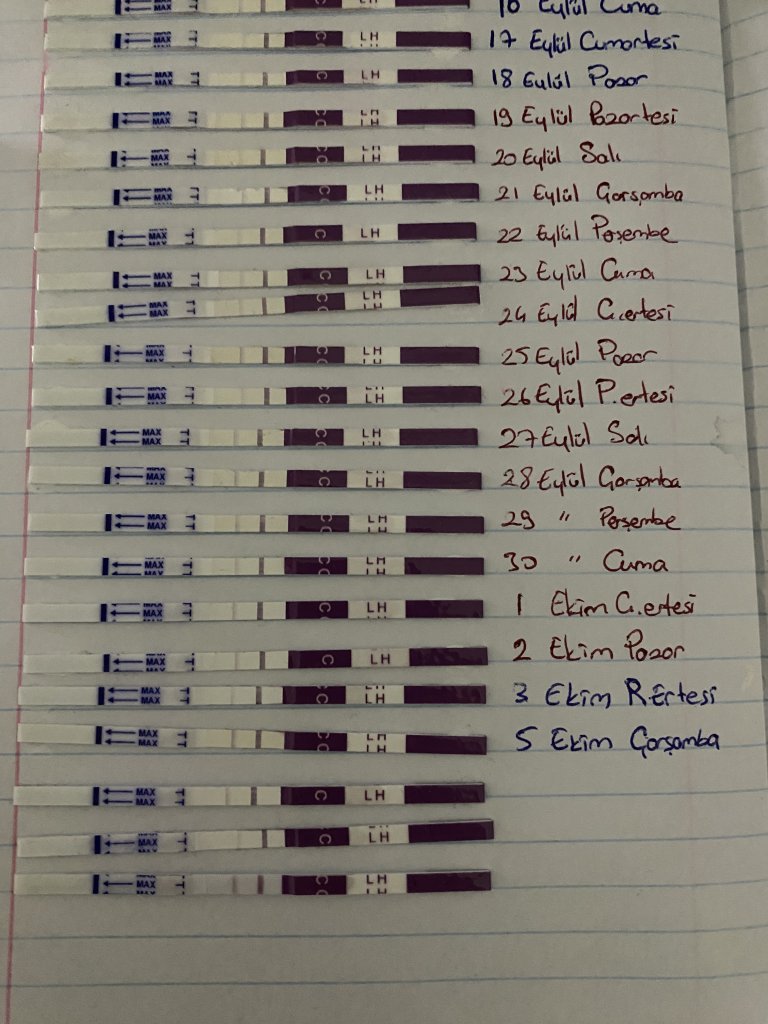 MAX LH 16 Eylül Cuma
MAX T C LH 17 Eylül Cumartesi
MAX T C LH 18 Eylül Pazar
MAX T C LH 19 Eylül Pazartesi
MAX T C LH 20 Eylül Salı
MAX T C LH 21 Eylül Çarşamba
MAX T C LH 22 Eylül Perşembe
MAX T C LH 23 Eylül Cuma
MAX T C LH 24 Eylül C.ertesi
MAX T C LH 25 Eylül Pazar
MAX T C LH 26 Eylül P.ertesi
MAX T C LH 27 Eylül Salı
MAX T C LH 28 Eylül Çarşamba
MAX T C LH 29 " Perşembe
MAX T C LH 30 " Cuma
MAX T C LH 1 Ekim C.ertesi
MAX T C LH 2 Ekim Pazar
MAX T C LH 3 Ekim P.Ertesi
MAX T C LH 5 Ekim Çarşamba
MAX T C LH
MAX T C LH
MAX T C LH